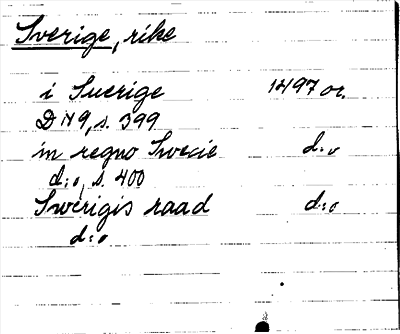 Sverige, rike
i Suerige 1497 or.
D 119, s. 399
in regno Swecie d:o
d:o, s. 400
Swerigis raad d:o
d:o